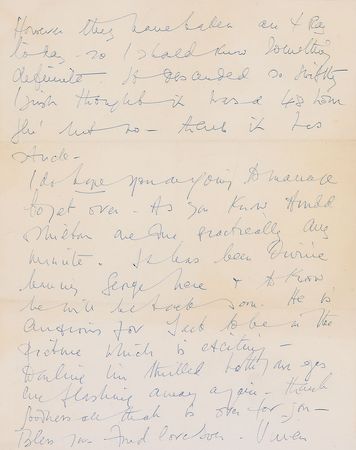 However they have taken an X Ray
today - so I should know something
definite. It descended so swiftly
I just thought it was a 48 hour
flu' but no - there it has
stuck -
I do hope you are going to manage
to get over. As you know Arnold
& Milton are due practically any
minute. It has been Divine
having George here & to know
he will be back soon. He is
anxious for Jack to be in the
picture which is exciting -
Darling I'm thrilled both your eyes
are flashing away again - thank
goodness all that is over for you -
Bless you Fond love Vivien